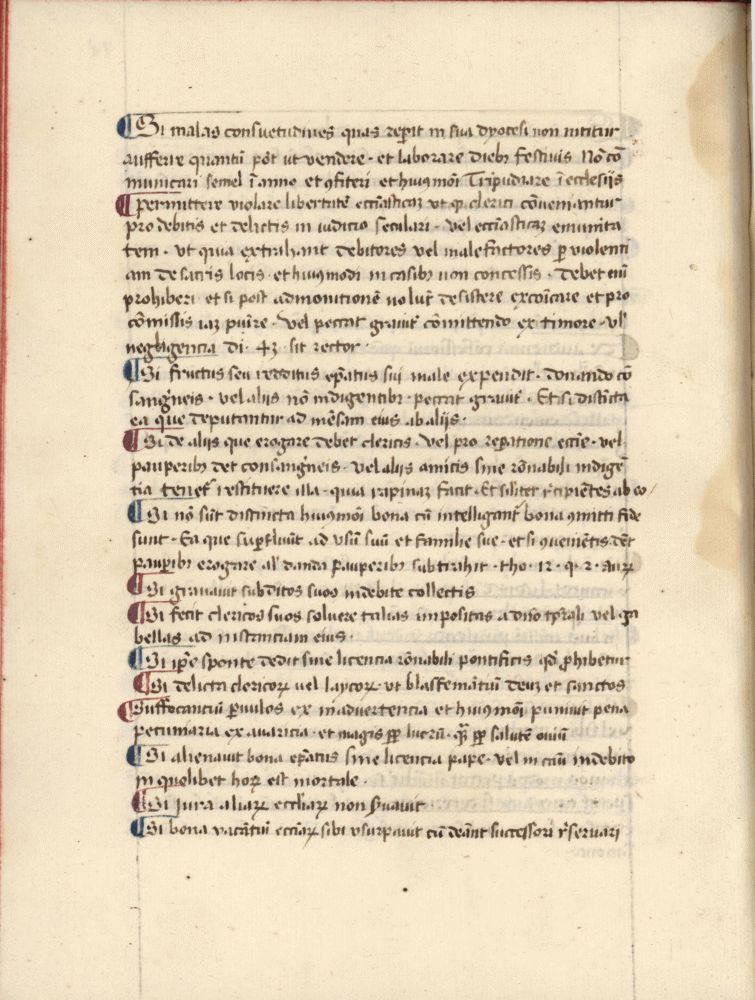 ¶ Si malas consuetudines quas reperit in sua dyocesi non nititur
aufferre quantū pōt ut vendere · et laborare diebꝰ festivis Nō cō
municari semel ī anno et ꝯfiteri et huiꝰmōi Tripudiare ī ecclesijs
¶ permittere violare libertatē eccīasticaꝫ vt ꝙ clerici cōveniantur
pro debitis et delictis in iudicio seculari · vel eccīasticaꝫ emunita
tem · vt quia extrahant debitores vel malefactores ꝑ violenti
am de sacris locis · et huiꝰmodi in casibꝫ non concessis · debet eni
prohiberi et si post admonitionē noluīt desistere excōicare et pro
cōmissis iaꝫ punire · vel peccat gravit cōmittendo ex timore · vl'
negligencia di · 43 · sit rector ·
¶ Si fructus seu redditus epātus sui male expendit · donando cō
sangneis · vel aliis nō indigentibꝫ · peccat gravit · Et si distīcta
ea que deputantur ad mēsam eius ab aliis ·
¶ Si de aliis que erogare debet clericis · vel pro repatione eccīe · vel
pauperibꝫ det consangneis · vel aliis amicis sine rōnabili indigē
tia tenet restituere illa · quia rapinaꝫ facit · Et siliter rcipiētes ab eo
¶ Si nō sūt distincta huiꝰmōi bona cū intelligant bona ꝯmitti fide
sunt · Ea que supfluūt ad usū suū et familie sue · et si ꝯveniētis det
pauꝑibꝫ erogare al' danda pauperibꝫ subtrahit · tho · 12 · q · 2 ·
¶ Si gravavit subditos suos indebite collectis
¶ Si fecit clericos suos solvere talias impositas a dn̄o tp̄ali vel ga
bellas ad instanciam eius ·
¶ Si ip̄e sponte dedit sine licencia rōnabili pontificis qd ꝓhibetur
¶ Si delicta clericoꝝ vel laycoꝝ · vt blasfemātiū deuꝫ et sanctos
¶ Suffocantiū ꝑvulos ex inadvertencia et huiꝰmōi punivit pena
pecuniaria ex avaricia · et magis ꝓp lucrū · q̄ꝫ ꝓp salutē oviū
¶ Si alienavit bona epātus sine licencia pape · vel in cāu indebito
in quolibet hoꝝ est mortale ·
¶ Si jura aliaꝝ eccl'iaꝝ non ẜvavit
¶ Si bona vacātiū ecciaꝝ sibi usurpavit cū deānt successori rservari